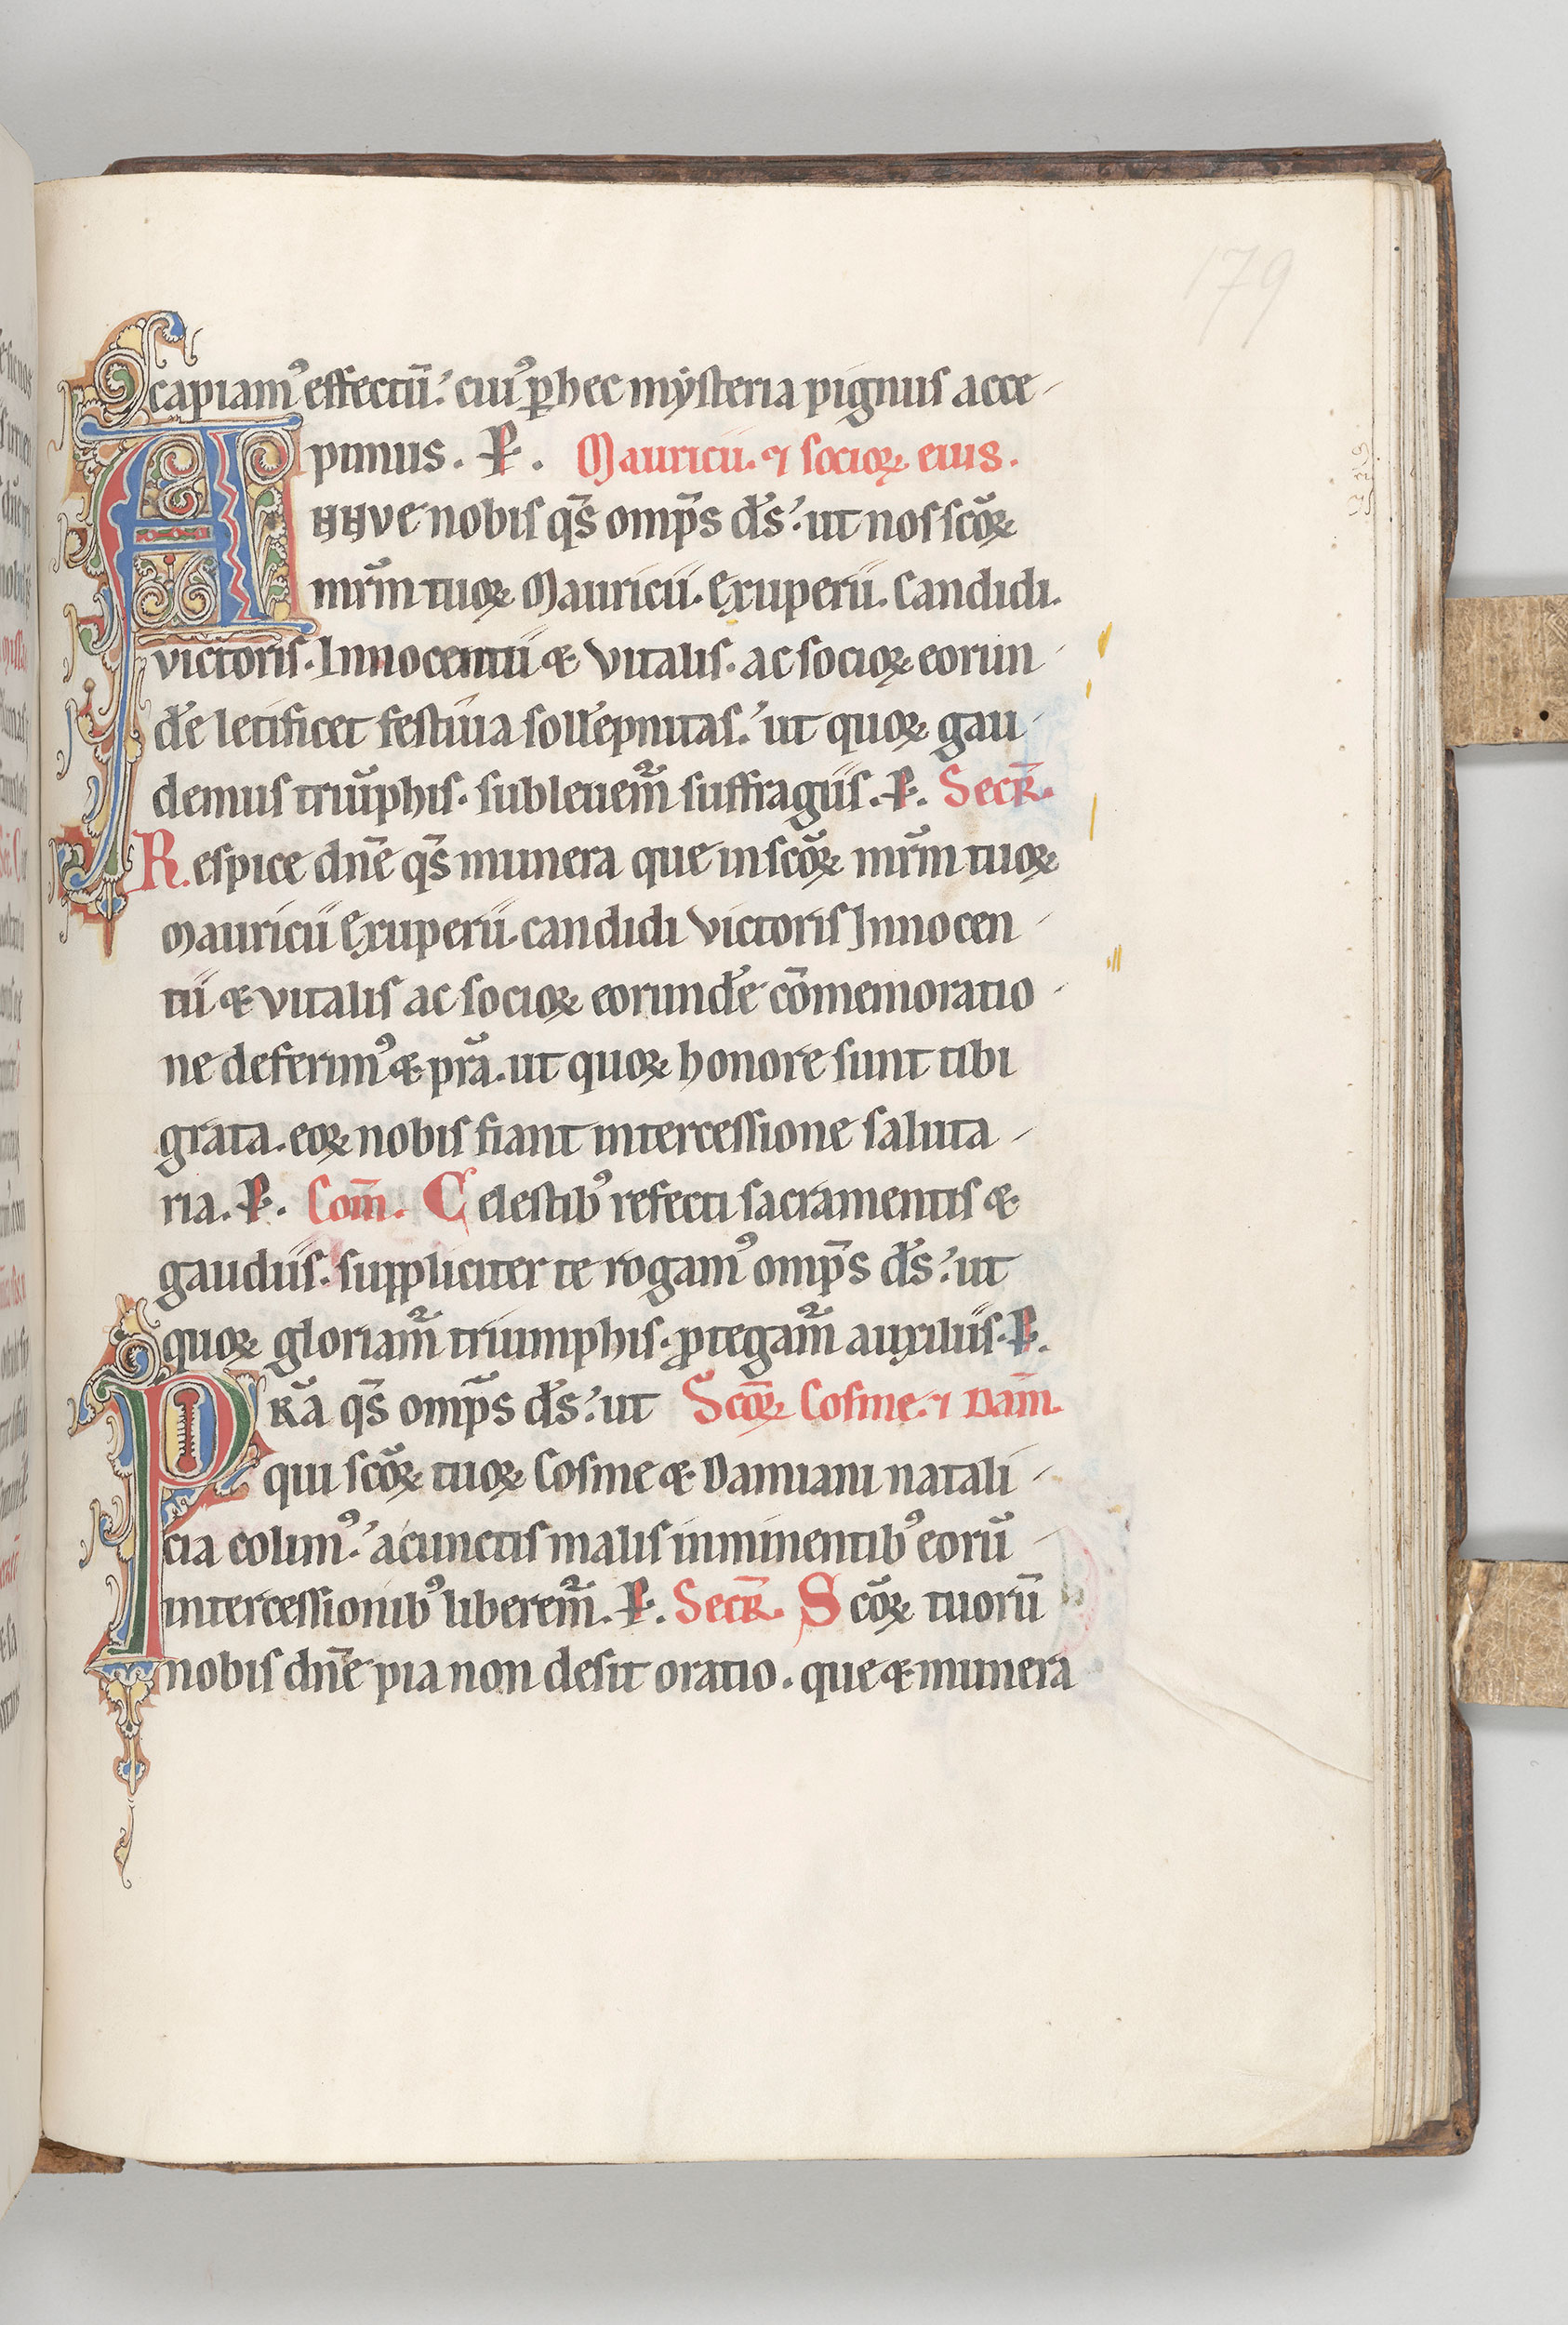 179
capiam᾽ effectū. cui᾽ ꝑ hec mẏsteria pignus acce-
pimus. P̵. Mauricii. ⁊ socioꝝ eius.
ANNVE nobis qs̄ omp̄s ds̄. ut nos scōꝝ
mr̄m tuoꝝ Mauricii. Exuperii. Candidi.
victoris. Innocentii & Vitalis. ac socioꝝ eorun-
dē letificet festiua sollēpnitas. ut quoꝝ gau-
demus triūphis. subleuem̄ suffragiis. P̵. Secr̄.
Respice dn̄e qs̄ munera que in scōꝝ mr̄m tuoꝝ
Mauricii Exuperii. candidi Victoris Innocen-
tii & vitalis ac socioꝝ eorundē cōmemoratio-
ne deferim᾽ & pr̄a. ut quoꝝ honore sunt tibi
grata. eoꝝ nobis fiant intercessione saluta-
ria. P̵. Com̄. Celestib᾽ refecti sacramentis &
gaudiis. suppliciter te rogam᾽ omp̄s ds̄. ut
quoꝝ gloriam̄ triumphis. ꝓtegam̄ auxiliis. P̵.
PRĀ qs̄ omp̄s ds̄. ut Scōꝝ Cosme. ⁊ Dam̄.
qui scōꝝ tuoꝝ Cosme & Damiani natali-
cia colim᾽. a cunctis malis inminentib᾽ eorū
intercessionib᾽ liberem̄. P̵. Secr̄. Scōꝝ tuorū
nobis dn̄e pia non desit oratio. que & munera